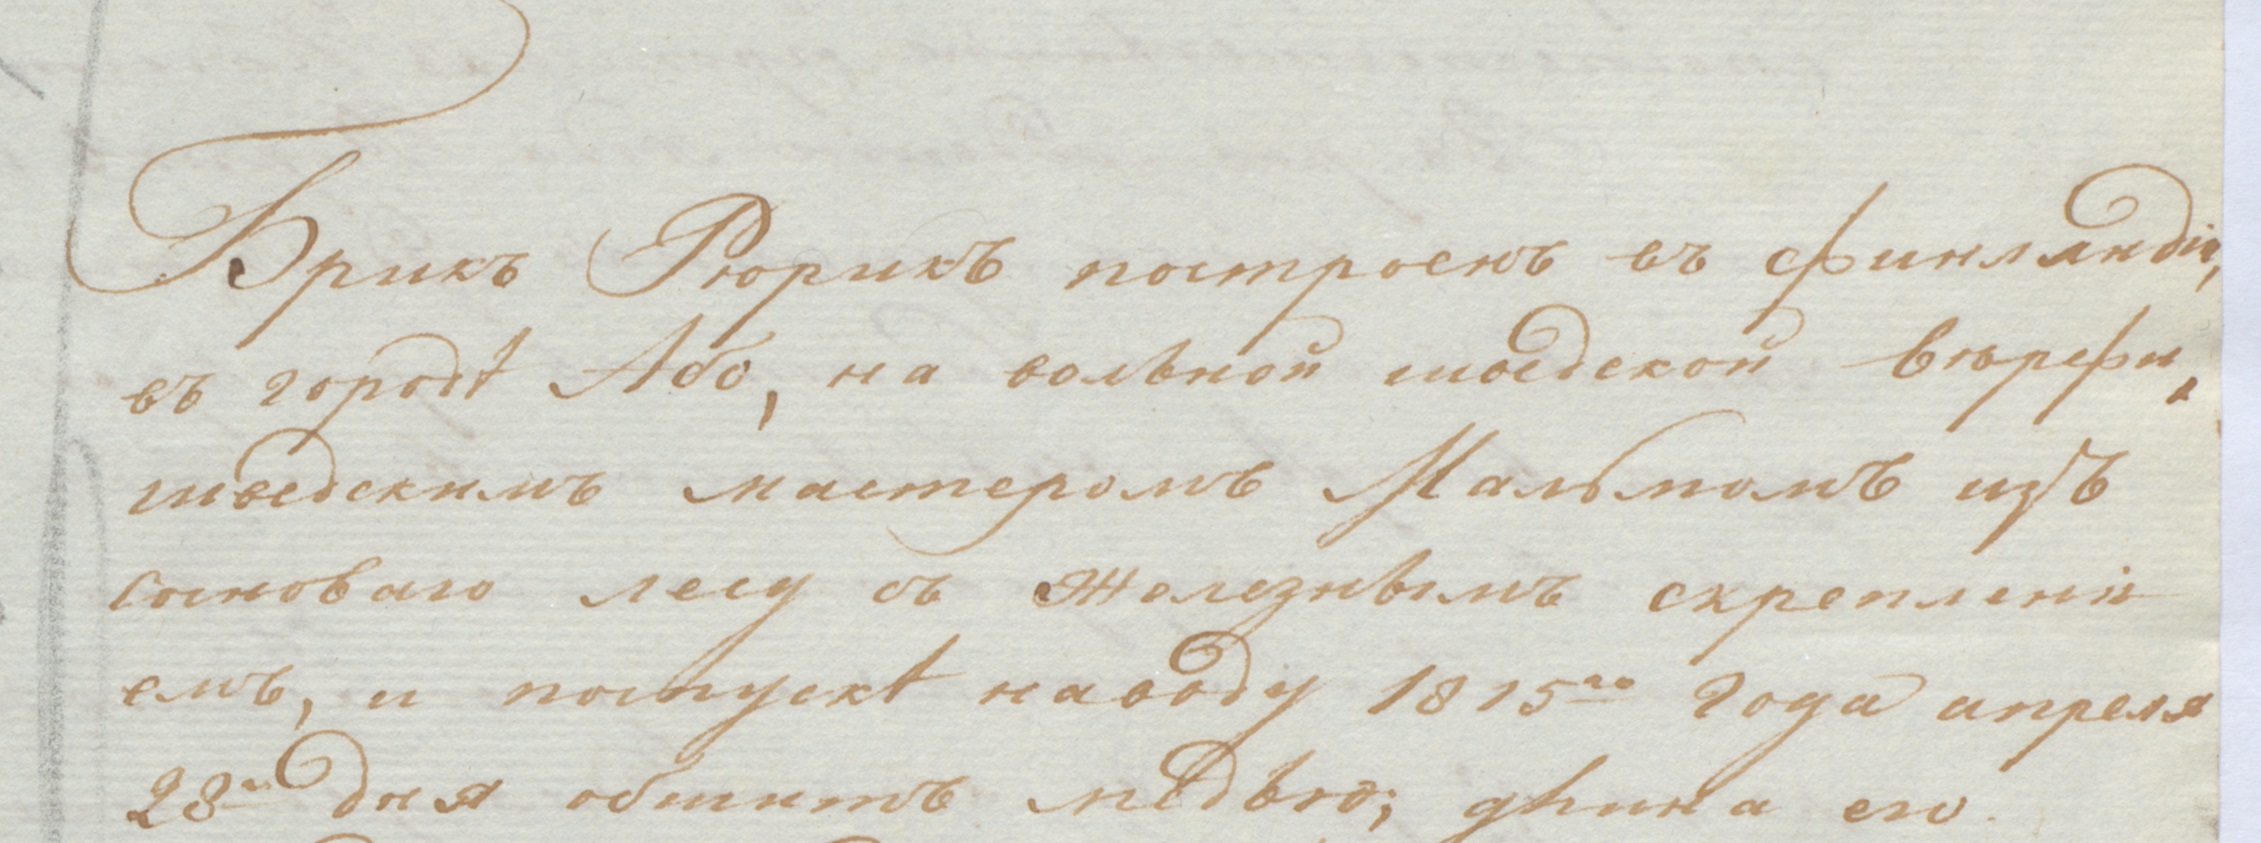 Брикъ Рюрикъ построенъ въ Финляндіи,
въ городѣ Або, на вольной шведской вюрфи,
шведскимъ мастеромъ Мальмомъ изъ
сосноваго лесу съ железнымъ скреплені
емъ, и постускѣ наводу 1815го года апреля
28го дня обшитъ мѣдью; длина его